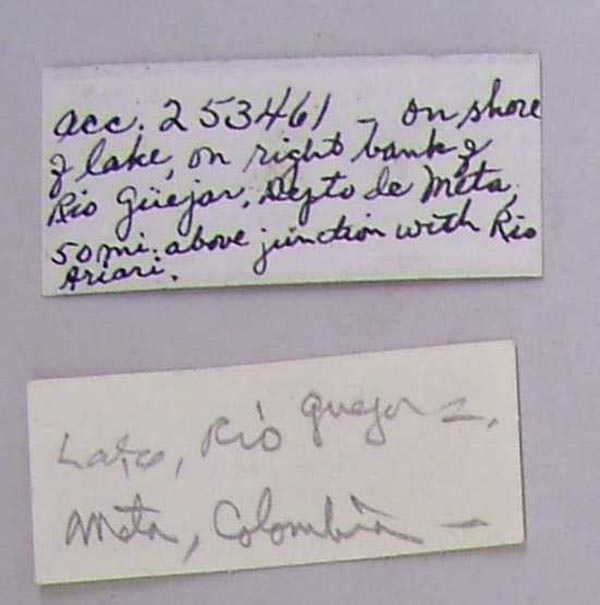 acc. 253461 - on shore
of lake, on right bank of
Rio Güejar, Depto de Meta,
50 mi. above junction with Rio
Ariari.
Lake, Rio Guejar
Meta, Colombia -